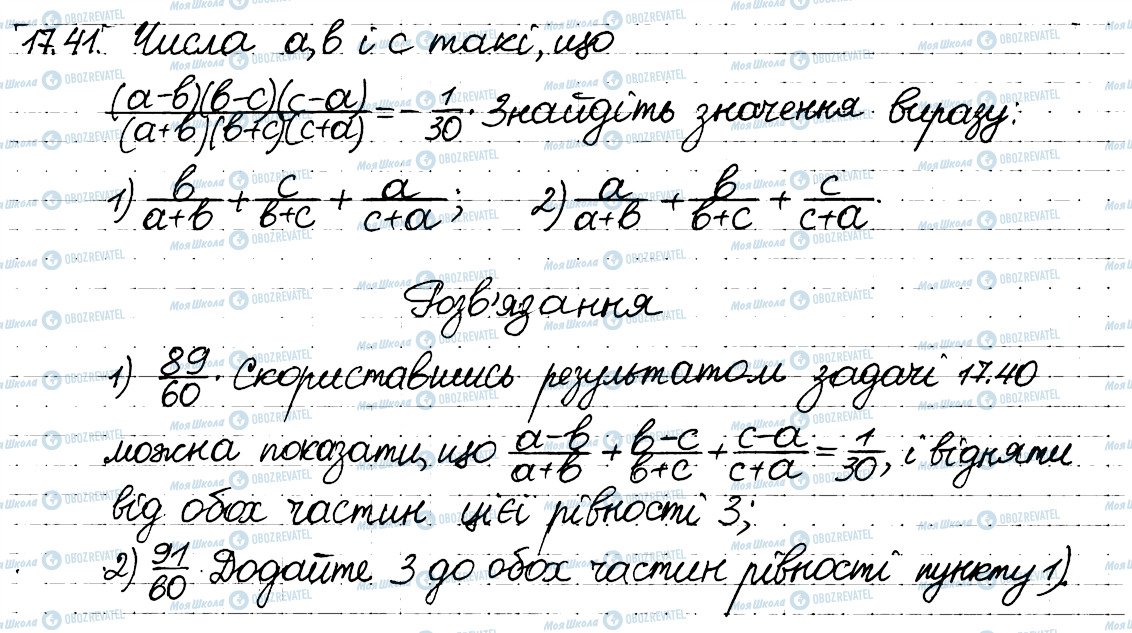 17.41. Числа a, b і c такі, що
(a-b)(b-c)(c-a)/(a+b)(b+c)(c+a) = -1/30. Знайдіть значення виразу:
1) b/a+b + c/b+c + a/c+a; 2) a/a+b + b/b+c + c/c+a.
Розв'язання
1) 89/60. Скориставшись результатом задачі 17.40
можна показати, що a-b/a+b + b-c/b+c + c-a/c+a = 1/30, і відняти
від обох частин цієї рівності 3;
2) 91/60 Додайте 3 до обох частин рівності пункту 1).